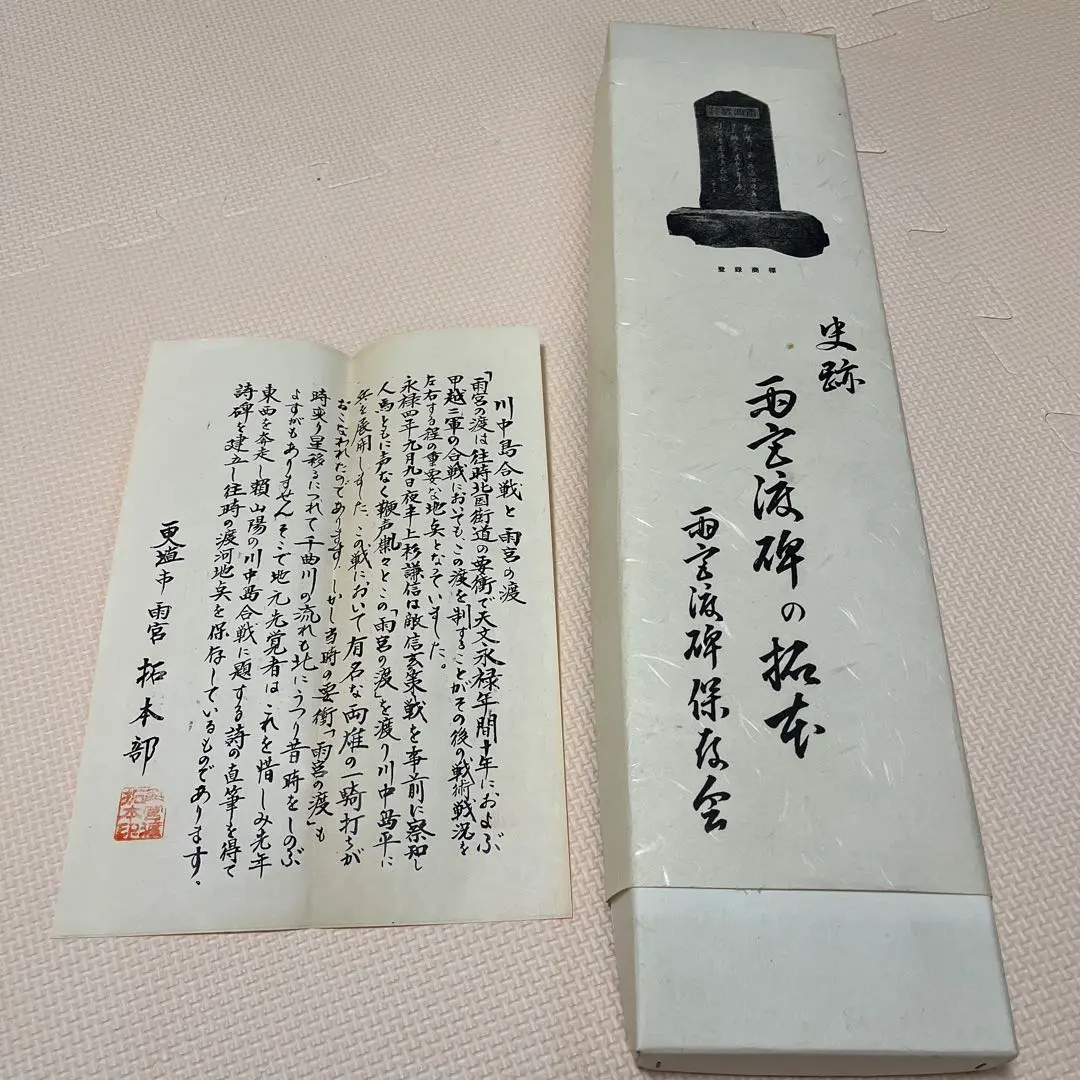 川中島合戦と雨宮の渡
「雨宮の渡は往時北国街道の要衝で天文永禄年間十年におよぶ
甲越二軍の合戦においても、この渡を制することがその後の戦術戦況を
左右する程の重要な地点となっていました。
永禄四年九月九日夜半上杉謙信は敵信玄策戦を事前に察知し
人馬ともに声なく鞭声粛々とこの「雨宮の渡」を渡り川中島平に
兵を展開しました、この戦において有名な両雄の一騎打ちが
おこなわれたのであります、しかし当時の要衝「雨宮の渡」も
時変り星移るにつれて千曲川の流れも北にうつり昔時をしのぶ
よすがもありません そこで地元先覚者は これを惜しみ先年
東西を奔走し頼山陽の川中島合戦に題する詩の直筆を得て
詩碑を建立し往時の渡河地点を保存しているものであります、
更埴市雨宮 拓本部
登録商標
史跡
雨宮渡碑の拓本
雨宮渡碑保存会